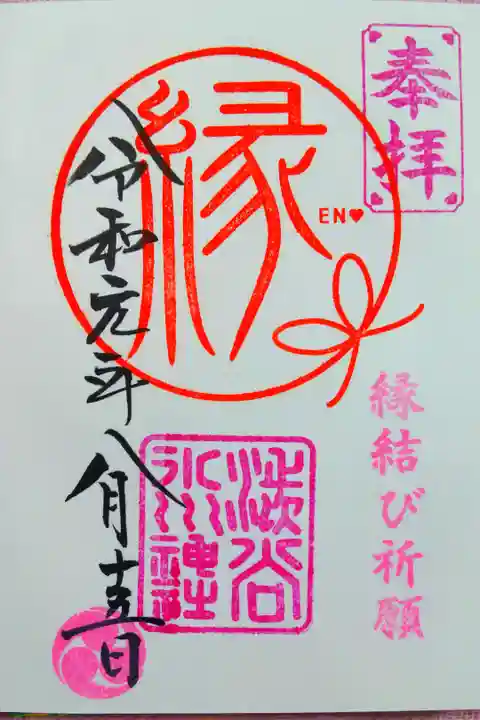 奉拝
縁結び祈願
縁
EN♥
渋谷
氷川神社
令和元年八月十五日